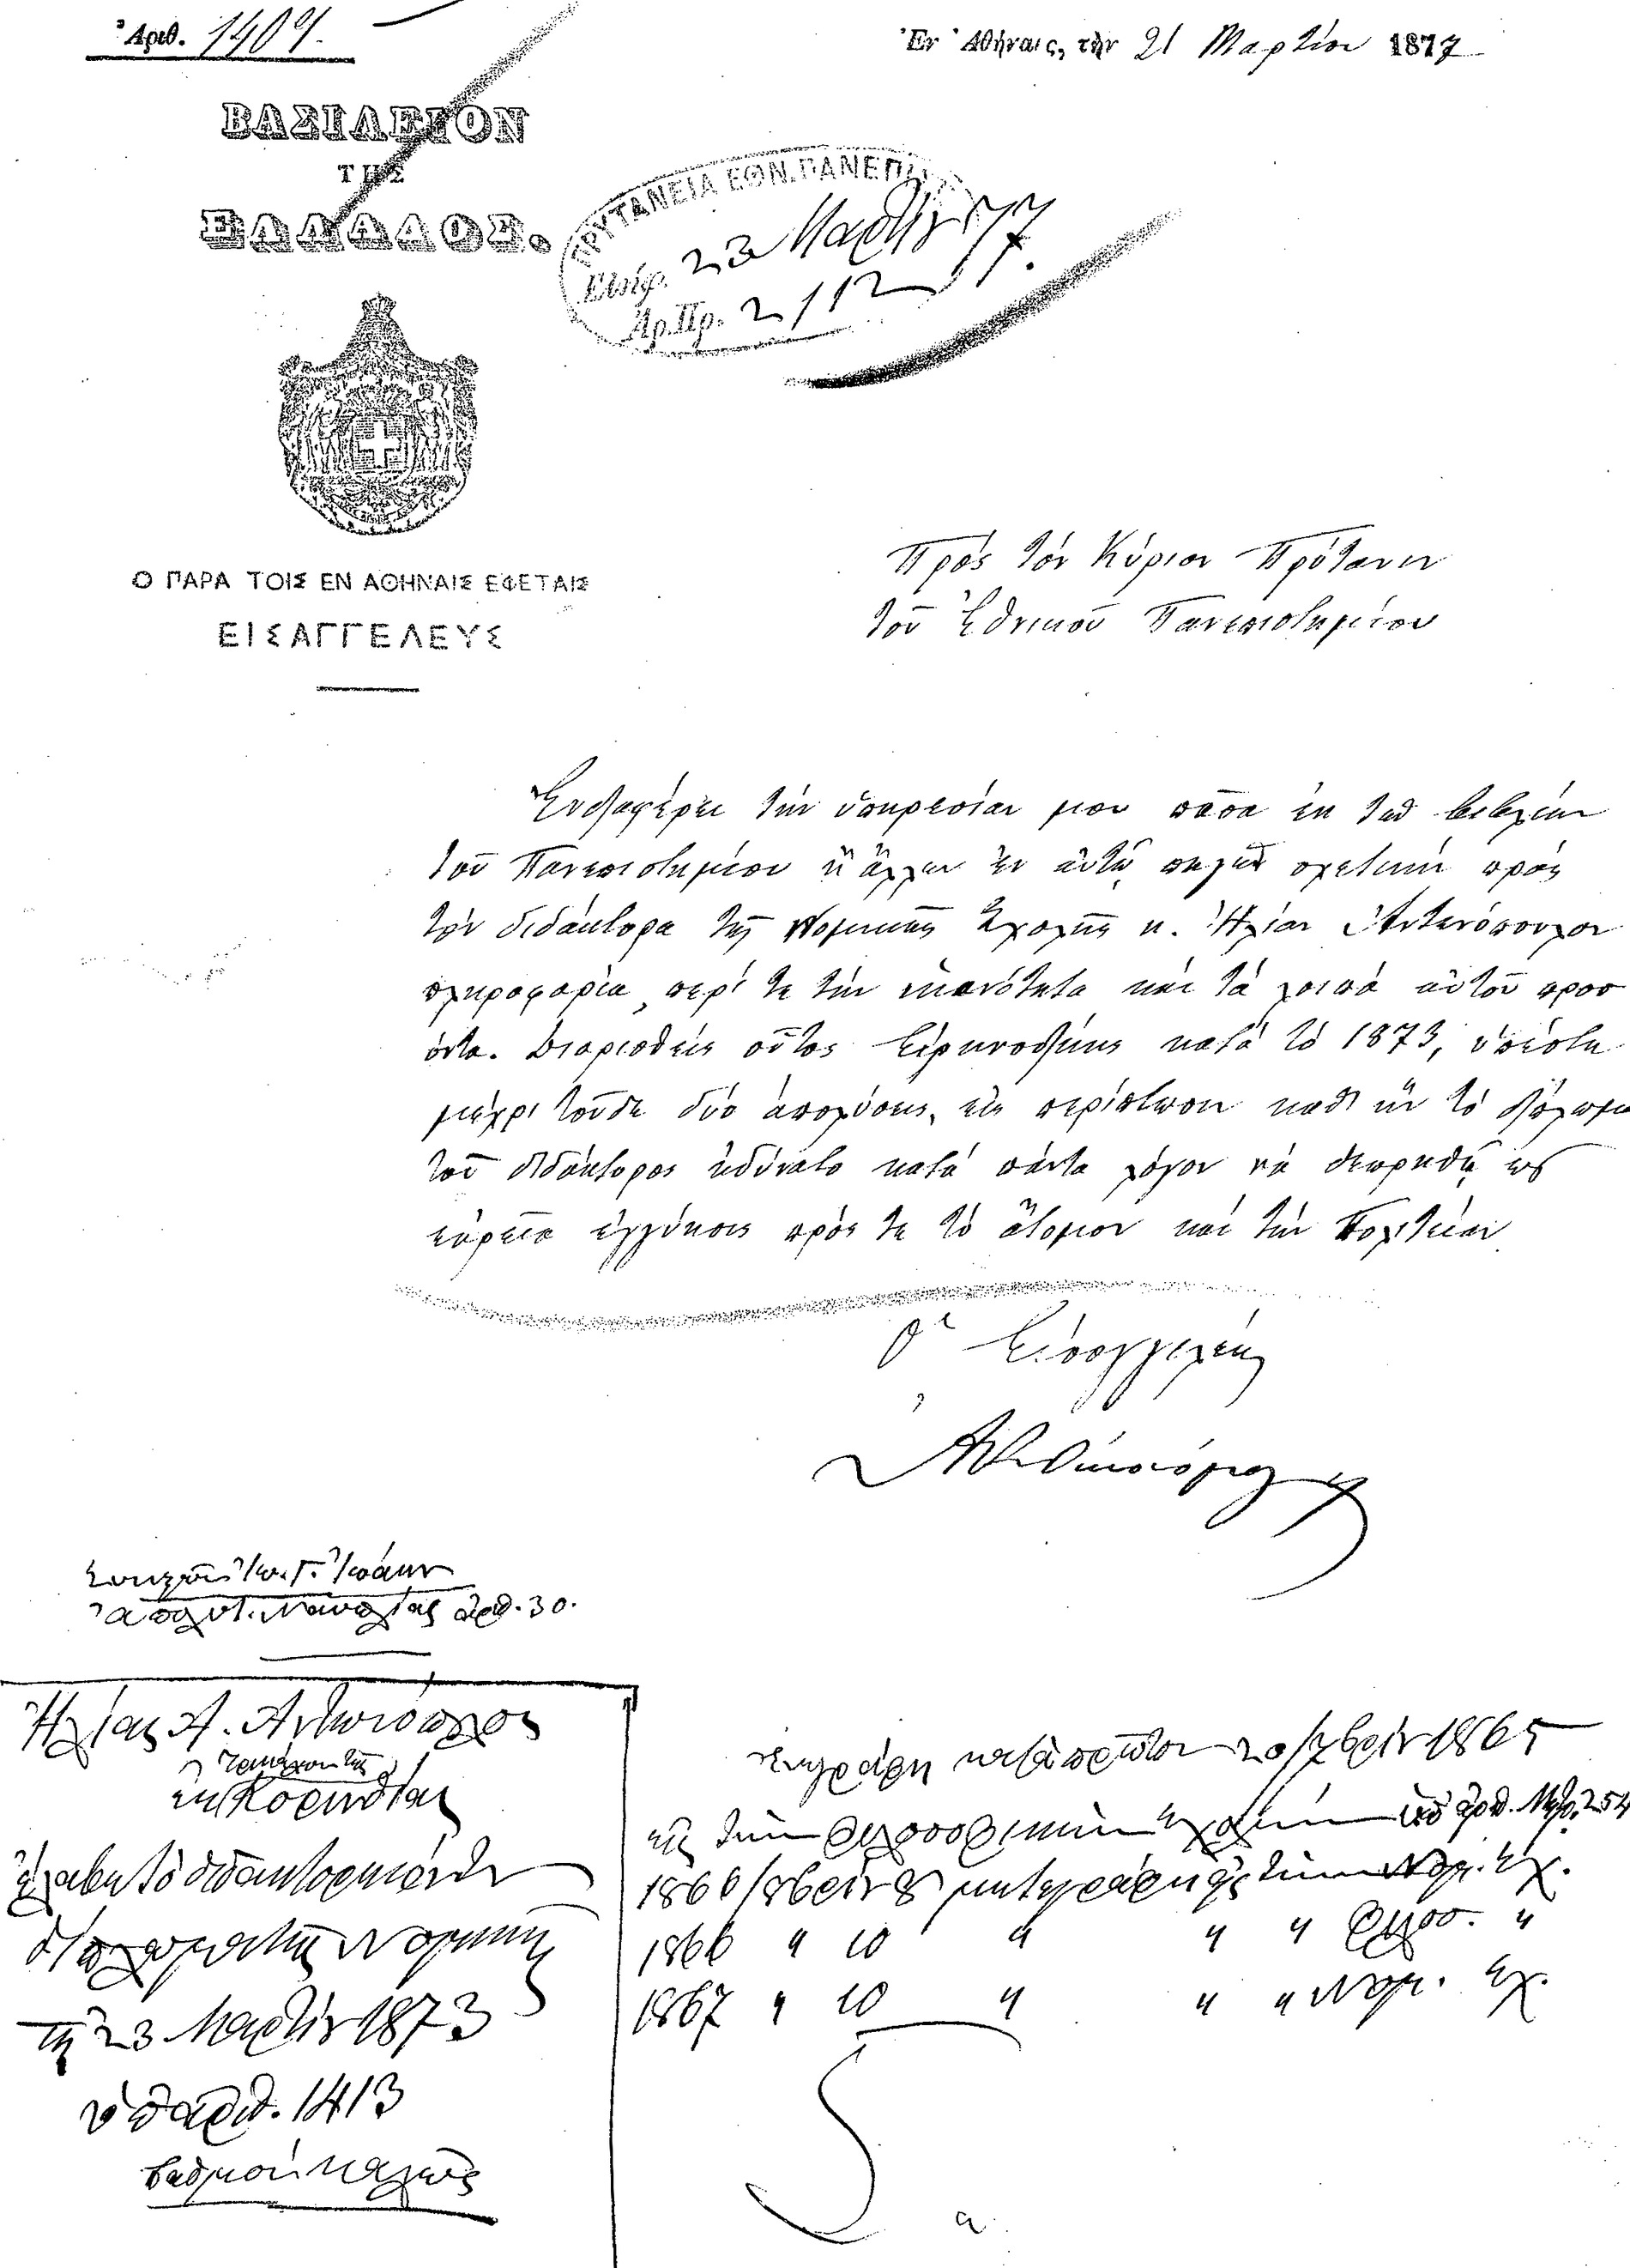 Ἀριθ. 1409.
Ἐν Ἀθήναις, τὴν 21 Μαρτίου 1877
ΒΑΣΙΛΕΙΟΝ
ΤΗΣ
ΕΛΛΑΔΟΣ.
ΠΡΥΤΑΝΕΙΑ ΕΘΝ. ΠΑΝΕΠΙΣ
Εἰσήχ. 23 Μαρτίου 77.
Ἀρ. Πρ. 2112
Ο ΠΑΡΑ ΤΟΙΣ ΕΝ ΑΘΗΝΑΙΣ ΕΦΕΤΑΙΣ
ΕΙΣΑΓΓΕΛΕΥΣ
Πρὸς τὸν Κύριον Πρύτανιν
τοῦ Ἐθνικοῦ Πανεπιστημίου
Ἐνδιαφέρει τὴν ὑπηρεσίαν μου πᾶσα ἐκ τῶν βιβλίων
τοῦ Πανεπιστημίου ἢ ἄλλων ἐν αὐτῷ πηγῶν σχετικὴ πρὸς
τὸν διδάκτορα τῆς Νομικῆς Σχολῆς κ. Ἠλίαν Ἀντωνόπουλον
πληροφορία, περί τε τὴν ἱκανότητα καὶ τὰ λοιπὰ αὐτοῦ προσ
όντα. Διορισθεὶς οὗτος Εἰρηνοδίκης κατὰ τὸ 1873, ὑπέστη
μέχρι τοῦδε δύο ἀπολύσεις, εἰς περίπτωσιν καθ' ἣν τὸ δίπλωμα
τοῦ διδάκτορος ἠδύνατο κατὰ πάντα λόγον νὰ θεωρηθῇ ὡς
εὐρεῖα ἐγγύησις πρός τε τὸ ἄτομον καὶ τὴν Πολιτείαν
Ὁ Εἰσαγγελεὺς
Οἰκονόμος
Ἰω. Γ. Ἰωάνν
Ναυπλίας ἀριθ. 30.
Ἠλίας Α. Ἀντωνόπουλος
ἐκ Κορινθίας
ἔλαβε τὸ διδακτορικὸν
δίπλωμα τῆς Νομικῆς
τῇ 23 Μαρτίου 1873
ὑπ' ἀριθ. 1413
βαθμὸν καλῶς
ἐνεγράφη κατὰ πρῶτον 20 7βρίου 1865
εἰς τὴν φιλοσοφικὴν Σχολὴν ὑπὸ ἀριθ. Μητρ. 254
1866 8βρίου 8 μετεγράφη εἰς τὴν Νομ. Σχ.
1866 " 10 " " " Φιλοσ. "
1867 " 10 " " " Νομ. Σχ.